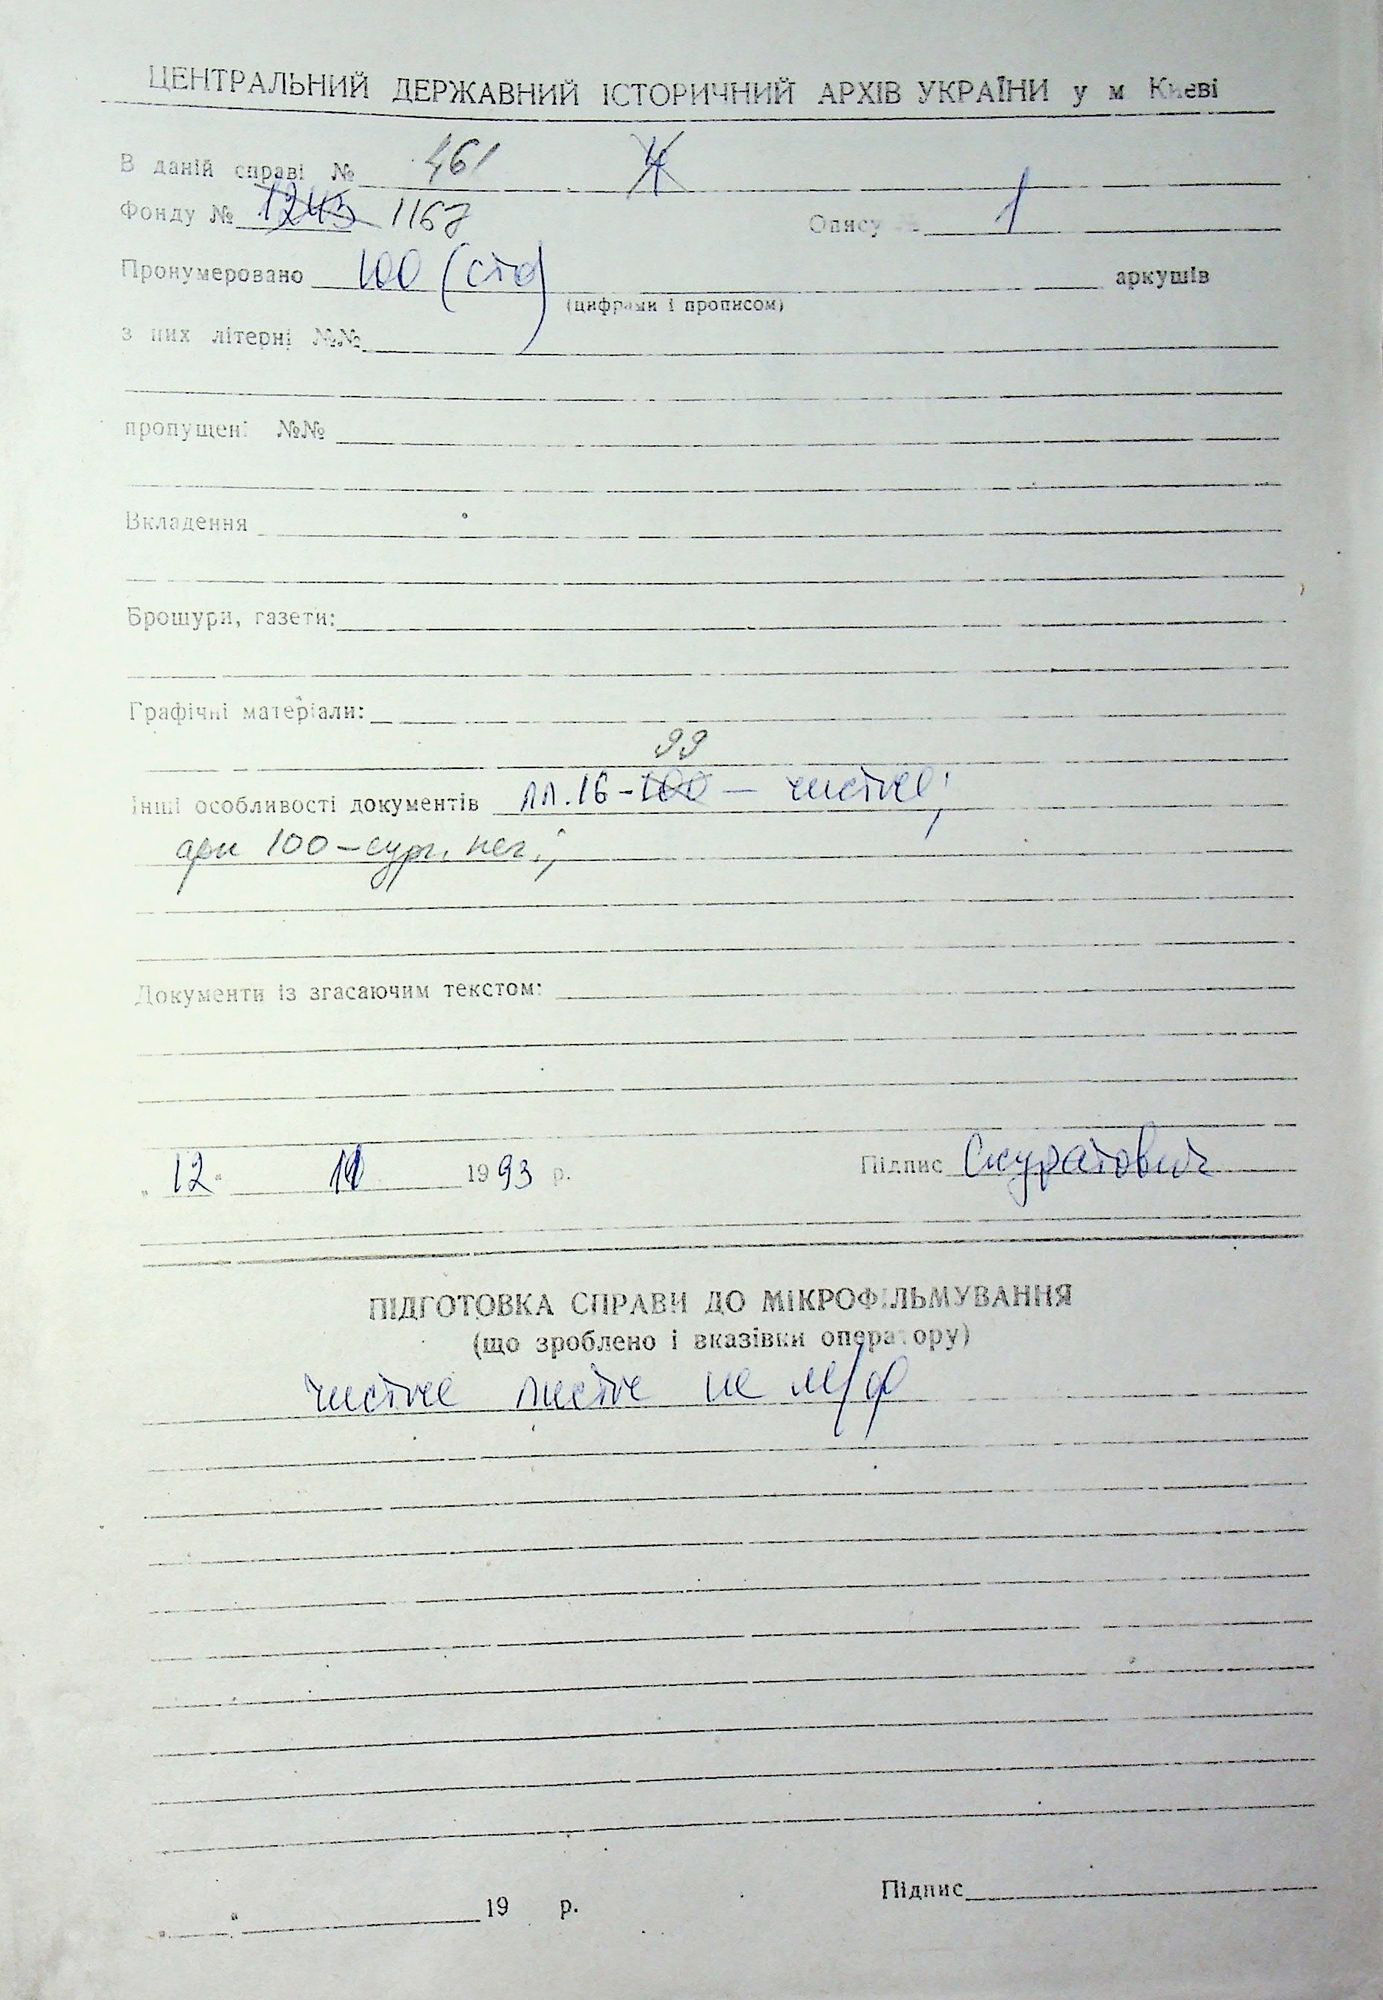 ЦЕНТРАЛЬНИЙ ДЕРЖАВНИЙ ІСТОРИЧНИЙ АРХІВ УКРАЇНИ у м Києві
В даній справі № 461 4
Фонду № 1243 1167 Опису № 1
Пронумеровано 100 (сто) аркушів
(цифрами і прописом)
з них літерні №№
пропущені №№
Вкладення
Брошури, газети:
Графічні матеріали:
99
Інші особливості документів лл. 16-100 – чистые;
арк 100 – сург. печ.;
Документи із згасаючим текстом:
„12“ 11 1993 р. Підпис Скуратович
ПІДГОТОВКА СПРАВИ ДО МІКРОФІЛЬМУВАННЯ
(що зроблено і вказівки оператору)
чистые листы не м/ф
„ “ 19 р. Підпис